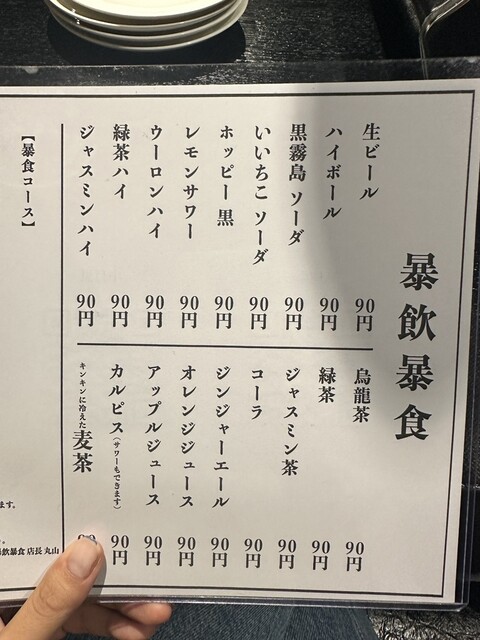 暴飲暴食
生ビール 90円
ハイボール 90円
黒霧島 ソーダ 90円
いいちこ ソーダ 90円
ホッピー 黒 90円
レモンサワー 90円
ウーロンハイ 90円
緑茶ハイ 90円
ジャスミンハイ 90円
烏龍茶 90円
緑茶 90円
ジャスミン茶 90円
コーラ 90円
ジンジャーエール 90円
オレンジジュース 90円
アップルジュース 90円
カルピス(サワーもできます) 90円
キンキンに冷えた麦茶
【暴食コース】
ます。
飲暴食 店長 丸山